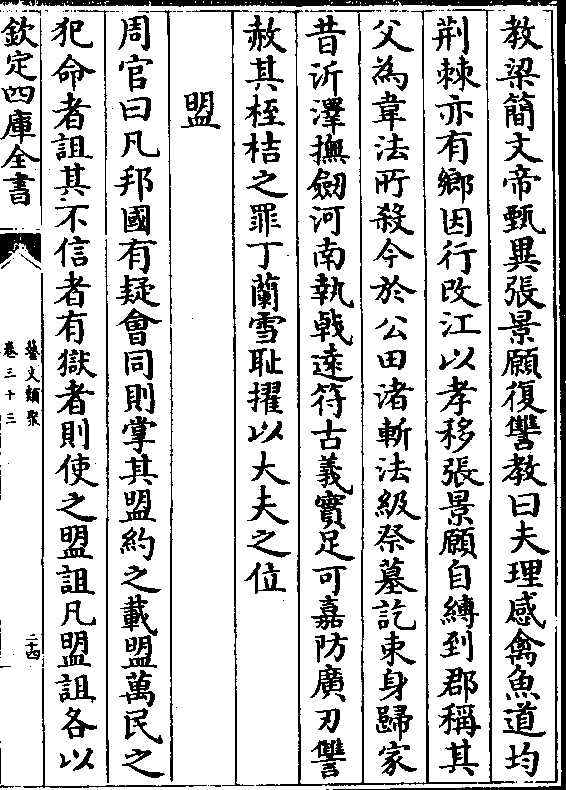 教梁簡文帝甄異張景願復讐教曰夫理感禽魚道均
荆棘亦有鄉因行改江以孝移張景願自縛到郡稱其
父為韋法所殺今於公田渚斬法級祭墓訖束身歸家
昔沂澤撫劒河南執戟遠符古義實足可嘉防廣刃讐
赦其桎梏之罪丁蘭雪恥擢以大夫之位
盟
周官曰凡邦國有疑會同則掌其盟約之載盟萬民之
犯命者詛其不信者有獄者則使之盟詛凡盟詛各以
欽定四庫全書
藝文類聚
卷三十三
二十四